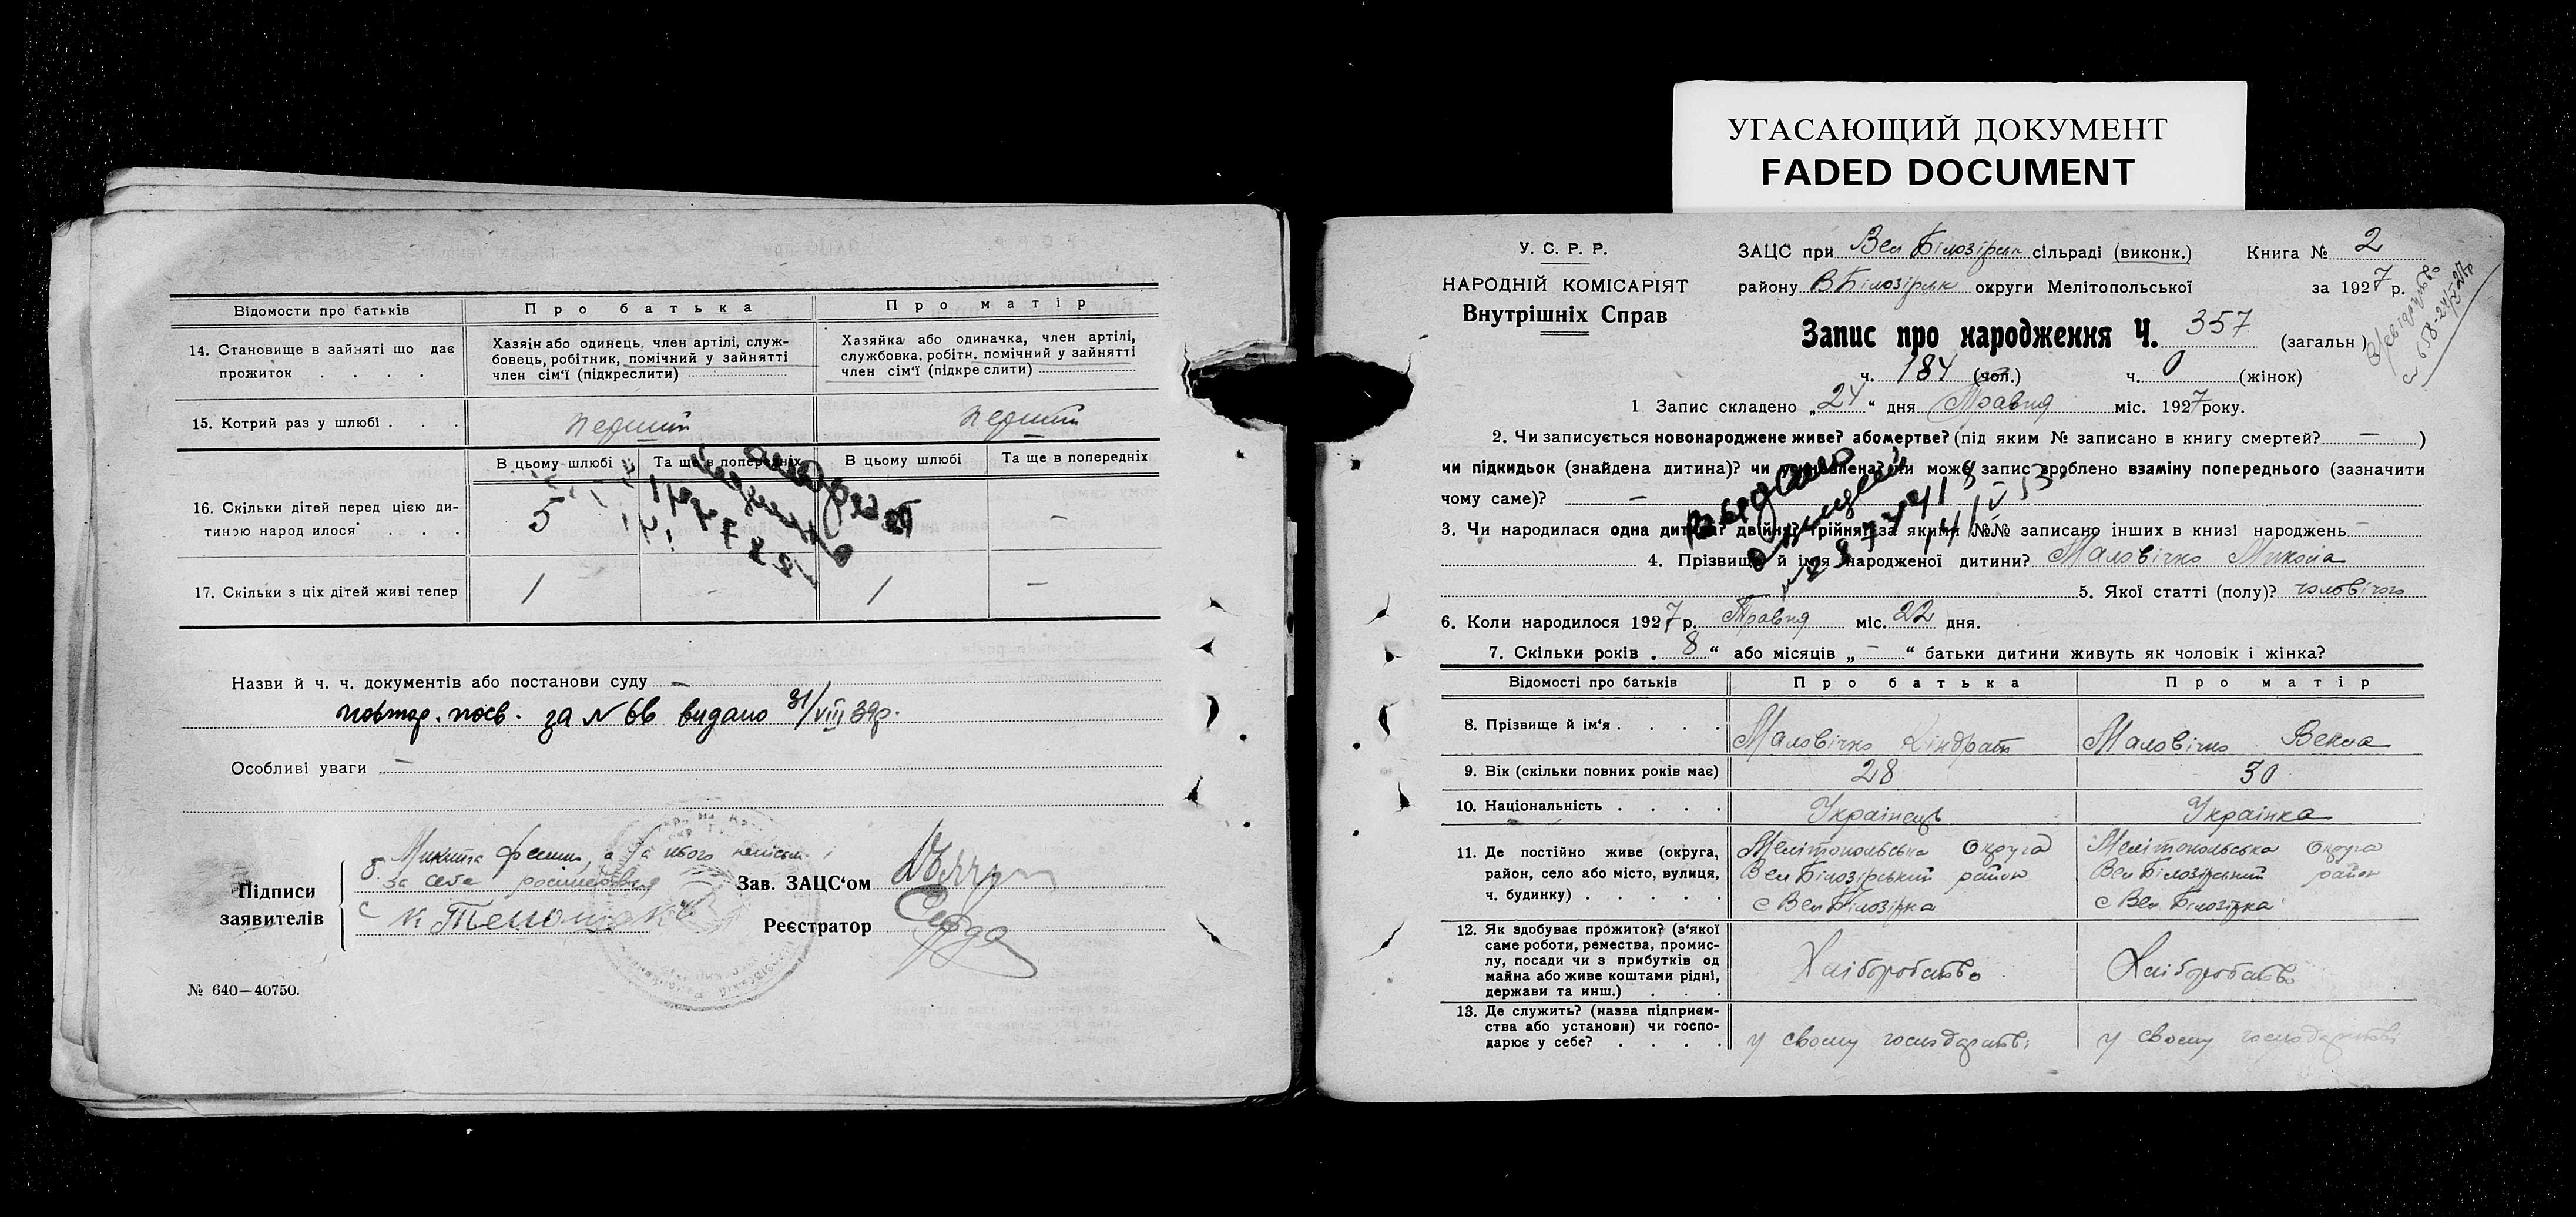 Відомости про батьків
Про батька
Про матір
14. Становище в зайняті що дає прожиток . . . .
Хазяїн або одинець, член артілі, служ-
бовець, робітник, помічний у зайнятті
член сім'ї (підкреслити)
Хазяйка або одиначка, член артілі,
службовка, робітн. помічний у зайнятті
член сім'ї (підкреслити)
15. Котрий раз у шлюбі . . .
перший
перший
В цьому шлюбі
Та ще в попередніх
В цьому шлюбі
Та ще в попередніх
16. Скільки дітей перед цією ди-
тиною народилося . . .
5
—
17. Скільки з ціх дітей живі тепер
1
-
1
—
Назви й ч. ч. документів або постанови суду —
повтор. посв. за № 66 видано 31/VIII 39р.
Особливі уваги —
Підписи
заявителів
Зав. ЗАЦС'ом
Реєстратор
№ 640—40750.
УГАСАЮЩИЙ ДОКУМЕНТ
FADED DOCUMENT
У. С. Р. Р.
НАРОДНІЙ КОМІСАРІЯТ
Внутрішніх Справ
ЗАЦС при Вел Білозірськ сільраді (виконк.) Книга № 2
району ВБілозірськ округи Мелітопольської за 1927 р.
Запис про народження Ч. 357 (загальн)
ч. 184 (чол.) ч. 0 (жінок)
1 Запис складено „24“ дня Травня міс. 1927 року.
2. Чи записується новонароджене живе? або мертве? (під яким № записано в книгу смертей? — )
чи підкидьок (знайдена дитина)? чи може запис зроблено взаміну попереднього (зазначити
чому саме)? —
3. Чи народилася одна дитина? двійня? трійня? за якими №№ записано інших в книзі народжень —
4. Прізвище й імя народженої дитини? Маловічко Микола
5. Якої статті (полу)? чоловічого
6. Коли народилося 1927 р. Травня міс. 22 дня.
7. Скільки років „8“ або місяців „-“ батьки дитини живуть як чоловік і жінка?
Відомості про батьків
Про батька
Про матір
8. Прізвище й ім'я . . . .
Маловічко Кіндрат
Маловічко Векла
9. Вік (скільки повних років має)
28
30
10. Національність . . . .
Українець
Українка
11. Де постійно живе (округа,
район, село або місто, вулиця,
ч. будинку) . . . . .
Мелітопольська округа
Вел Білозірський район
с Вел Білозірка
Мелітопольська округа
Вел Білозірський район
с Вел Білозірка
12. Як здобуває прожиток? (з'якої
саме роботи, ремества, промис-
лу, посади чи з прибутків од
майна або живе коштами рідні,
держави та инш.) . . .
Хліборобство
Хліборобство
13. Де служить? (назва підприєм-
ства або установи) чи госпо-
дарює у себе? . . . .
у своєму господарстві
у своєму господарстві